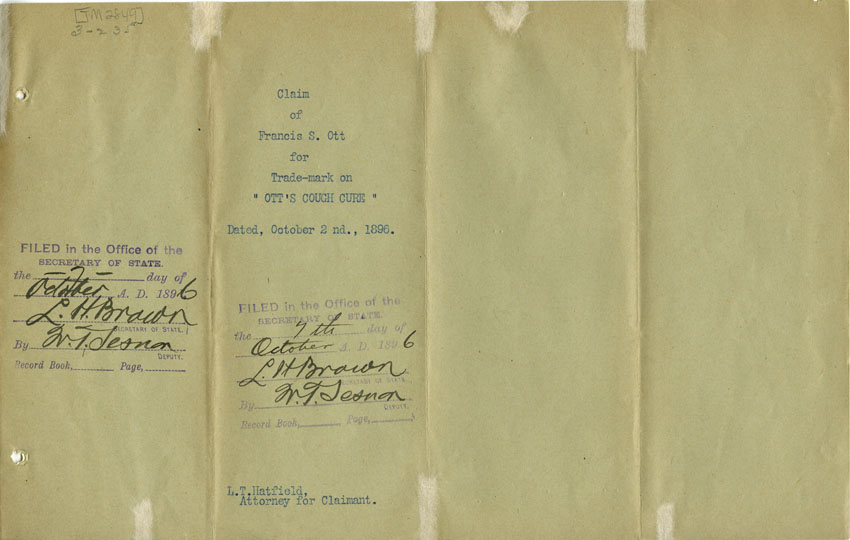 [TM 2849]
3-235
Claim
of
Francis S. Ott
for
Trade-mark on
" OTT'S COUGH CURE "
Dated, October 2 nd., 1896.
FILED in the Office of the
SECRETARY OF STATE.
the 7 day of
October A. D. 1896
L. H. Brown
SECRETARY OF STATE.
By W. T. Sesnon
DEPUTY.
Record Book, Page,
FILED in the Office of the
SECRETARY OF STATE.
the 7th day of
October A. D. 1896
L. H Brown
SECRETARY OF STATE.
By W. T. Sesnon
DEPUTY.
Record Book, Page,
L.T.Hatfield,
Attorney for Claimant.